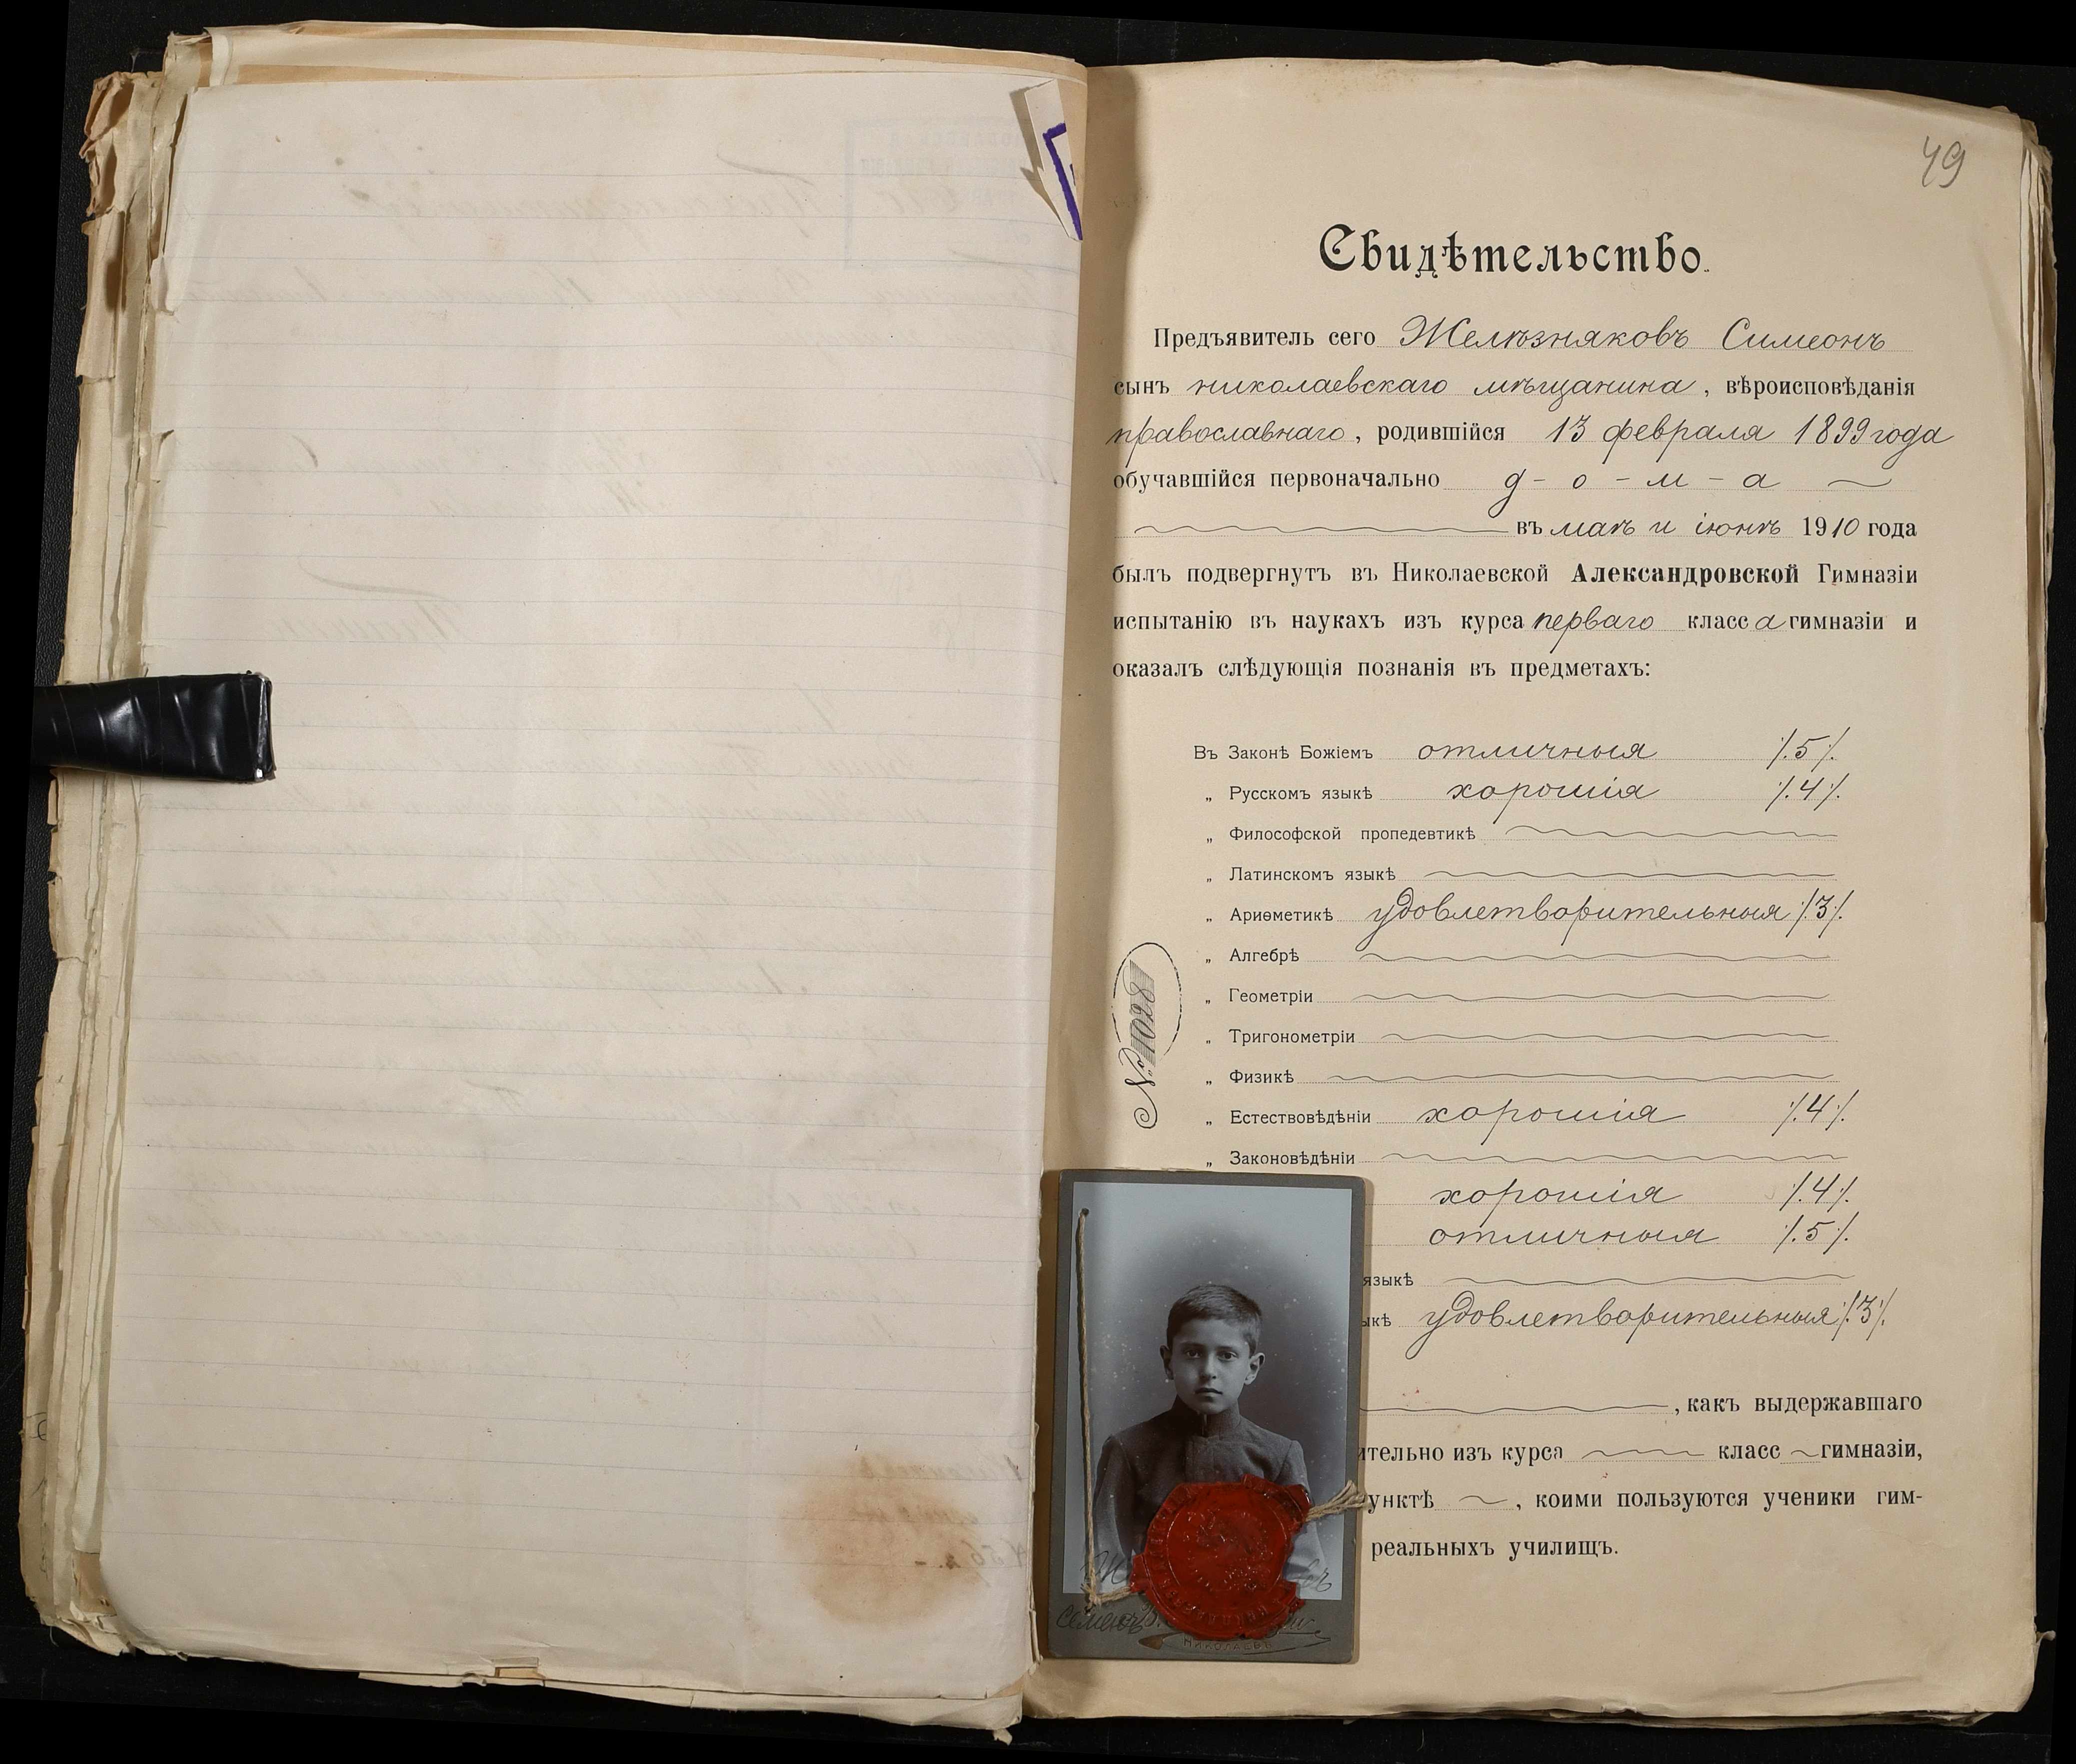 49
Свидѣтельство.
Предъявитель сего Желѣзняковъ Симеонъ
сынъ николаевскаго мѣщанина, вѣроисповѣданія
православнаго, родившійся 13 февраля 1899 года
обучавшійся первоначально д - о - м - а
въ маѣ и іюнѣ 1910 года
былъ подвергнутъ въ Николаевской Александровской Гимназіи
испытанію въ наукахъ изъ курса перваго класса гимназіи и
оказалъ слѣдующія познанія въ предметахъ:
Въ Законѣ Божіемъ отличныя ·/.5·/.
„ Русскомъ языкѣ хорошія ·/.4·/.
„ Философской пропедевтикѣ
„ Латинскомъ языкѣ
„ Ариѳметикѣ удовлетворительныя ·/.3·/.
„ Алгебрѣ
„ Геометріи
„ Тригонометріи
„ Физикѣ
„ Естествовѣдѣніи хорошія ·/.4·/.
„ Законовѣдѣніи
хорошія ·/.4·/.
отличныя ·/.5·/.
языкѣ
ыкѣ удовлетворительныя ·/.3·/.
, какъ выдержавшаго
ительно изъ курса класс гимназіи,
унктѣ , коими пользуются ученики гим-
реальныхъ училищъ.
№ 1028
Семенъ
Николаевъ